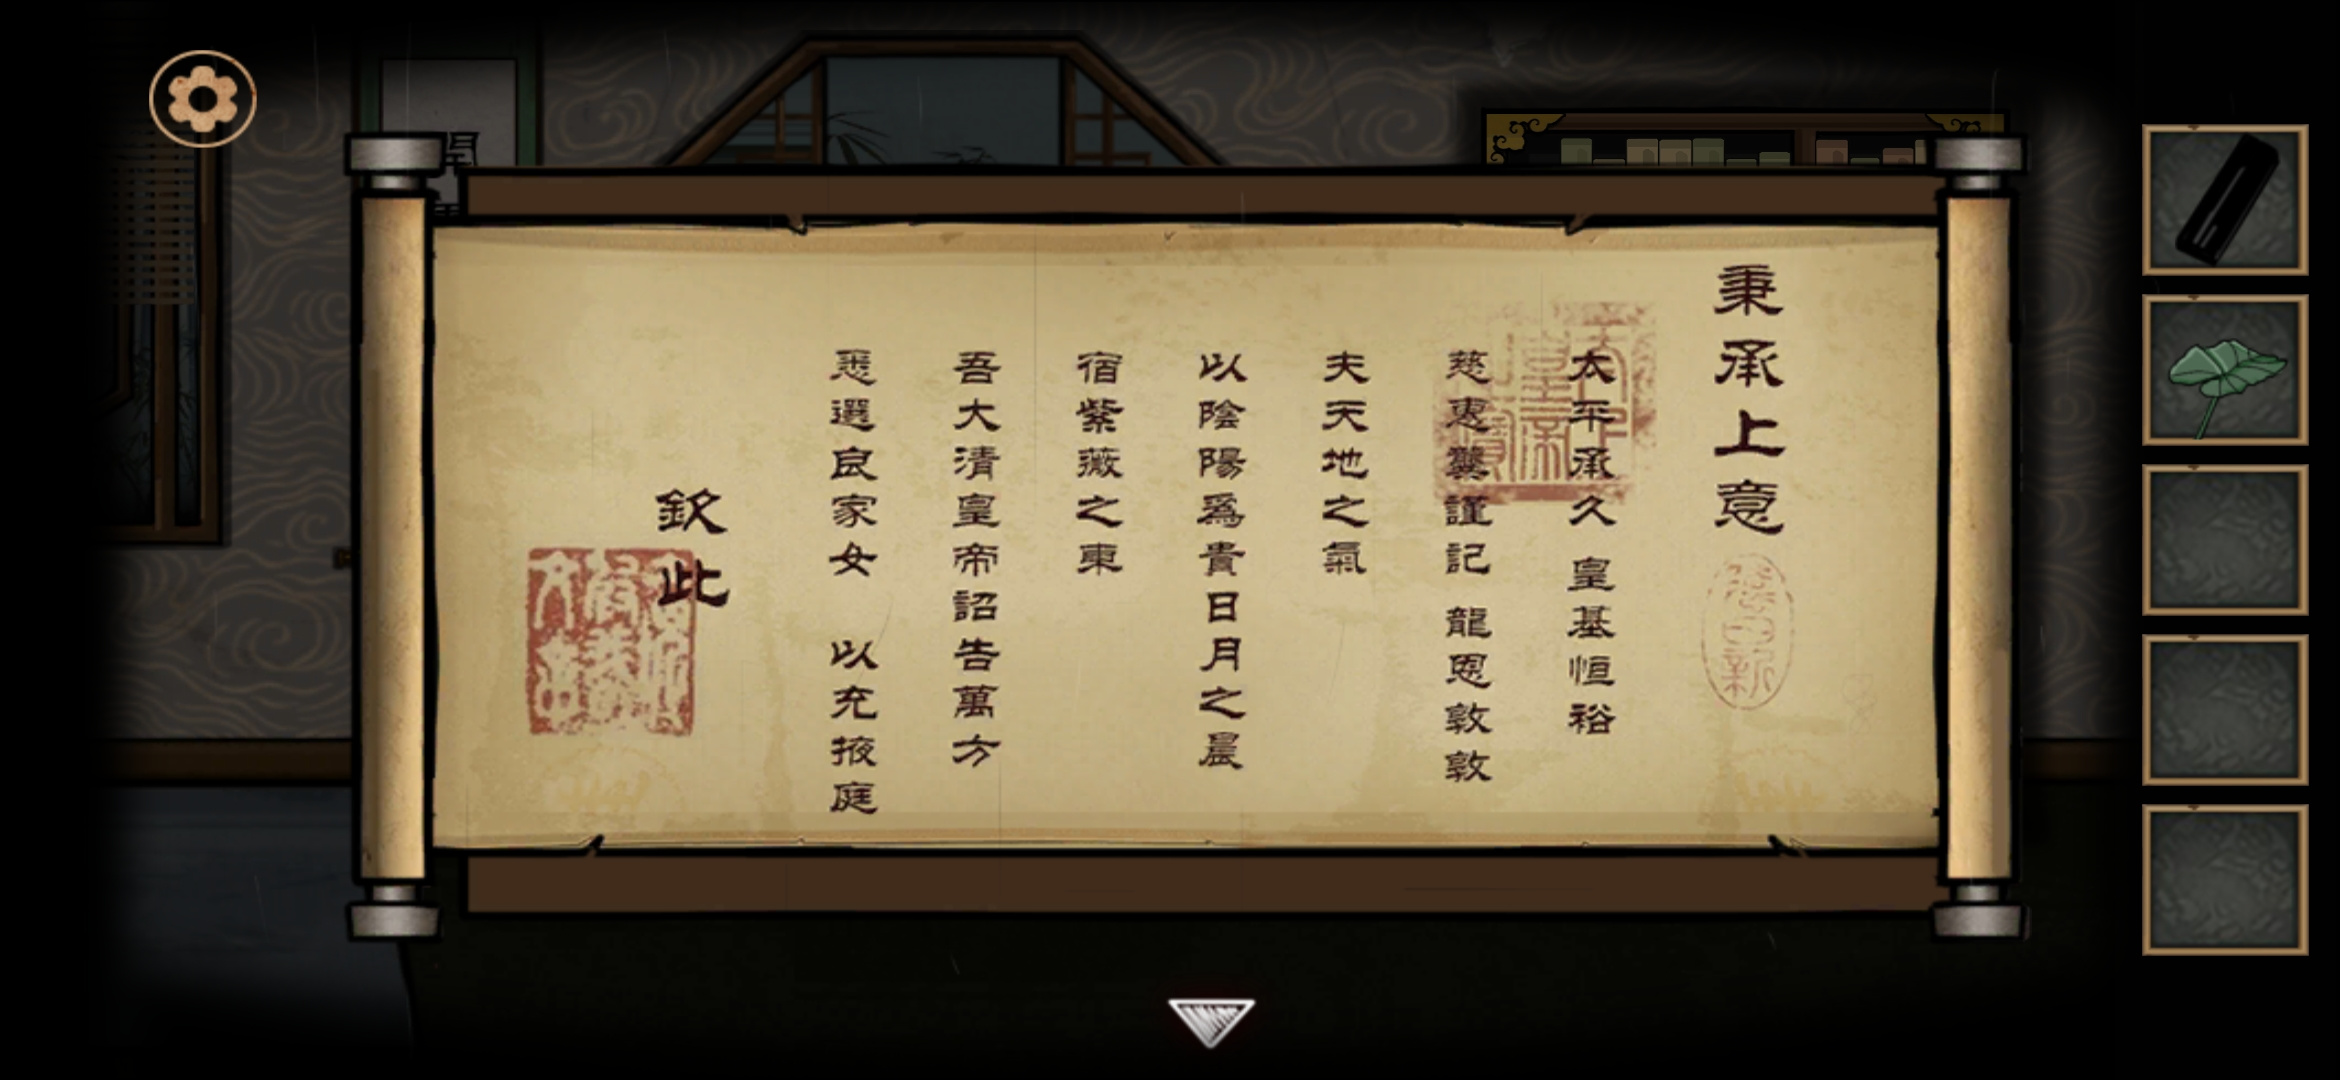 秉承上意
太平承久 皇基恒裕
慈惠襲謹記 龍恩敦敦
夫天地之氣
以陰陽爲貴日月之晨
宿紫薇之東
吾大清皇帝詔告萬方
悉選良家女 以充掖庭
欽此